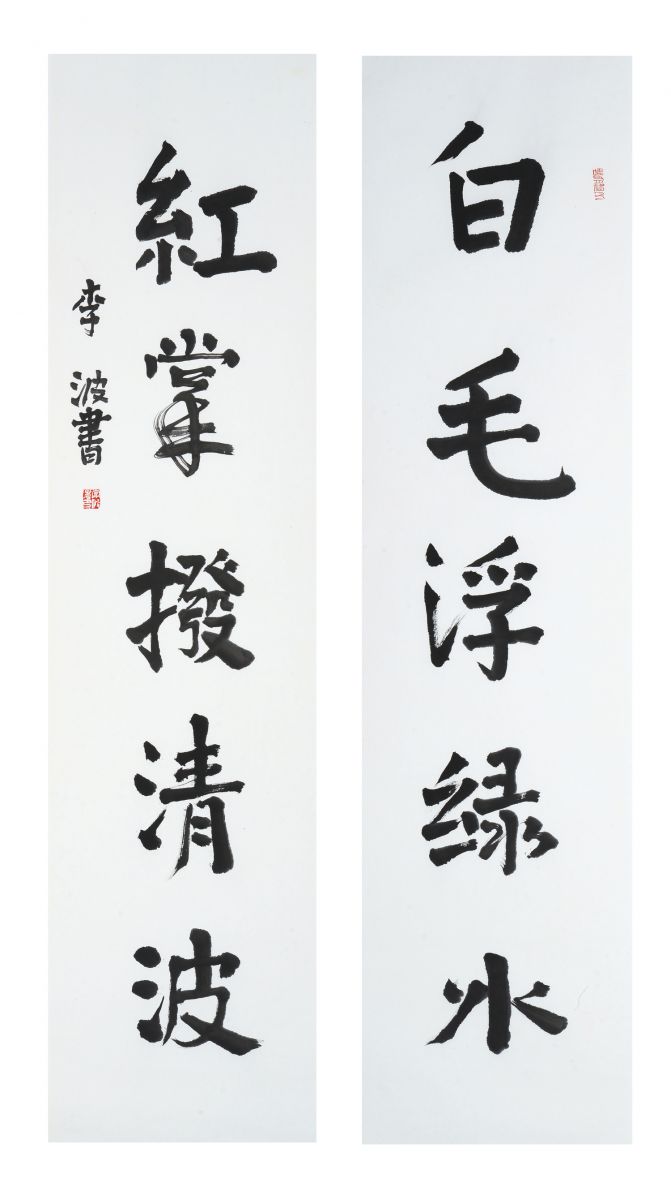 白毛浮绿水
紅掌撥清波
李波書